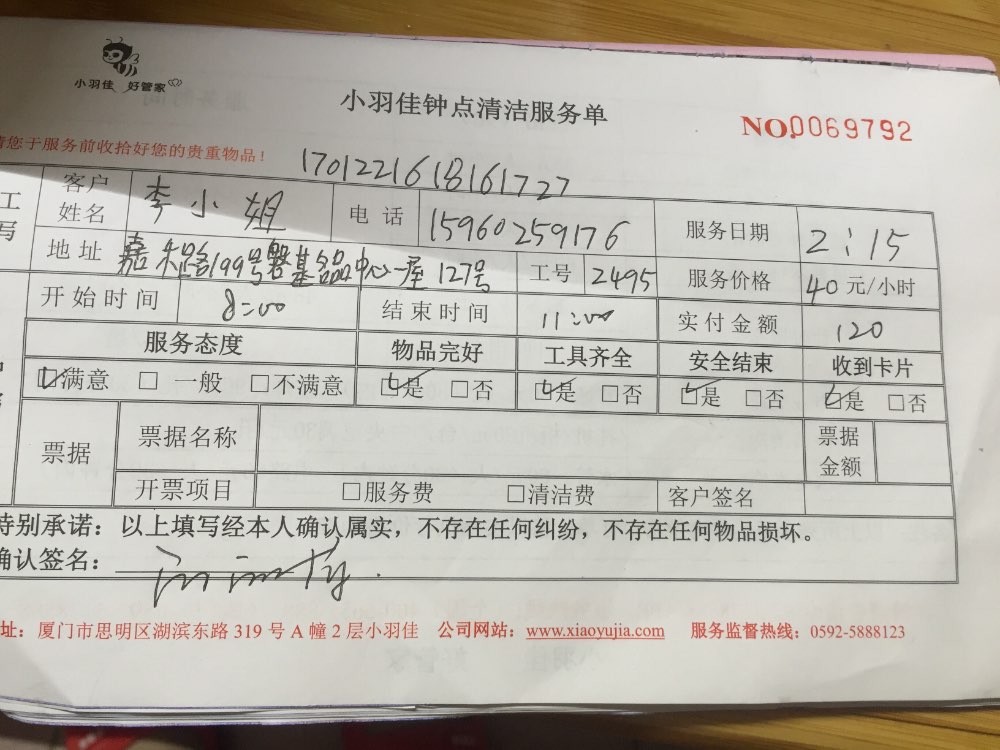 小羽佳 好管家
小羽佳钟点清洁服务单
NO.0069792
请您于服务前收拾好您的贵重物品！
1701221618161727
工 客户姓名 李小姐 电话 15960259176 服务日期 2:15
写 地址 嘉禾路199号磐基名品中心一层127号 工号 2495 服务价格 40元/小时
开始时间 8:00 结束时间 11:00 实付金额 120
服务态度 物品完好 工具齐全 安全结束 收到卡片
☑满意 □一般 □不满意 ☑是 □否 ☑是 □否 ☑是 □否 ☑是 □否
票据 票据名称 票据金额
开票项目 □服务费 □清洁费 客户签名
特别承诺：以上填写经本人确认属实，不存在任何纠纷，不存在任何物品损坏。
确认签名：
址：厦门市思明区湖滨东路 319 号 A 幢 2 层小羽佳 公司网站：www.xiaoyujia.com 服务监督热线：0592-5888123